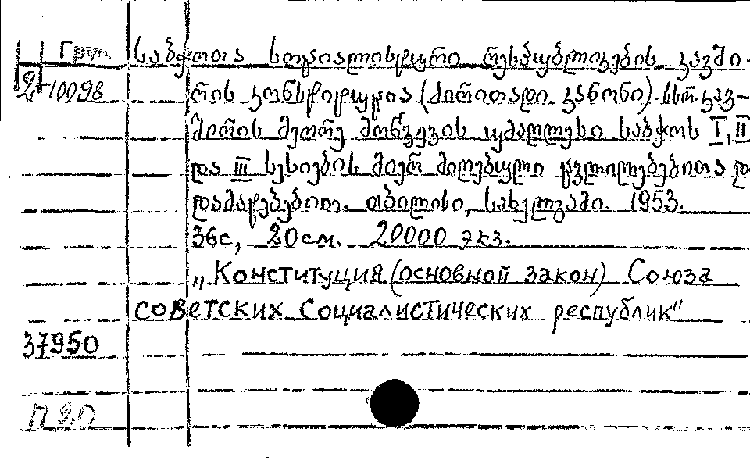 Груз. საბჭოთა სოციალისტური რესპუბლიკების კავში-
2-10098 რის კონსტიტუცია (ძირითადი კანონი). სსრ კავ-
შირის მეორე მოწვევის უმაღლესი საბჭოს I, II
და III სესიების მიერ მიღებული ცვლილებებითა და
დამატებებით. თბილისი, სახელგამი. 1953.
36 с, 20 см. 20000 экз.
„Конституция (основной закон) Союза
советских Социалистических республик"
37950
П 20